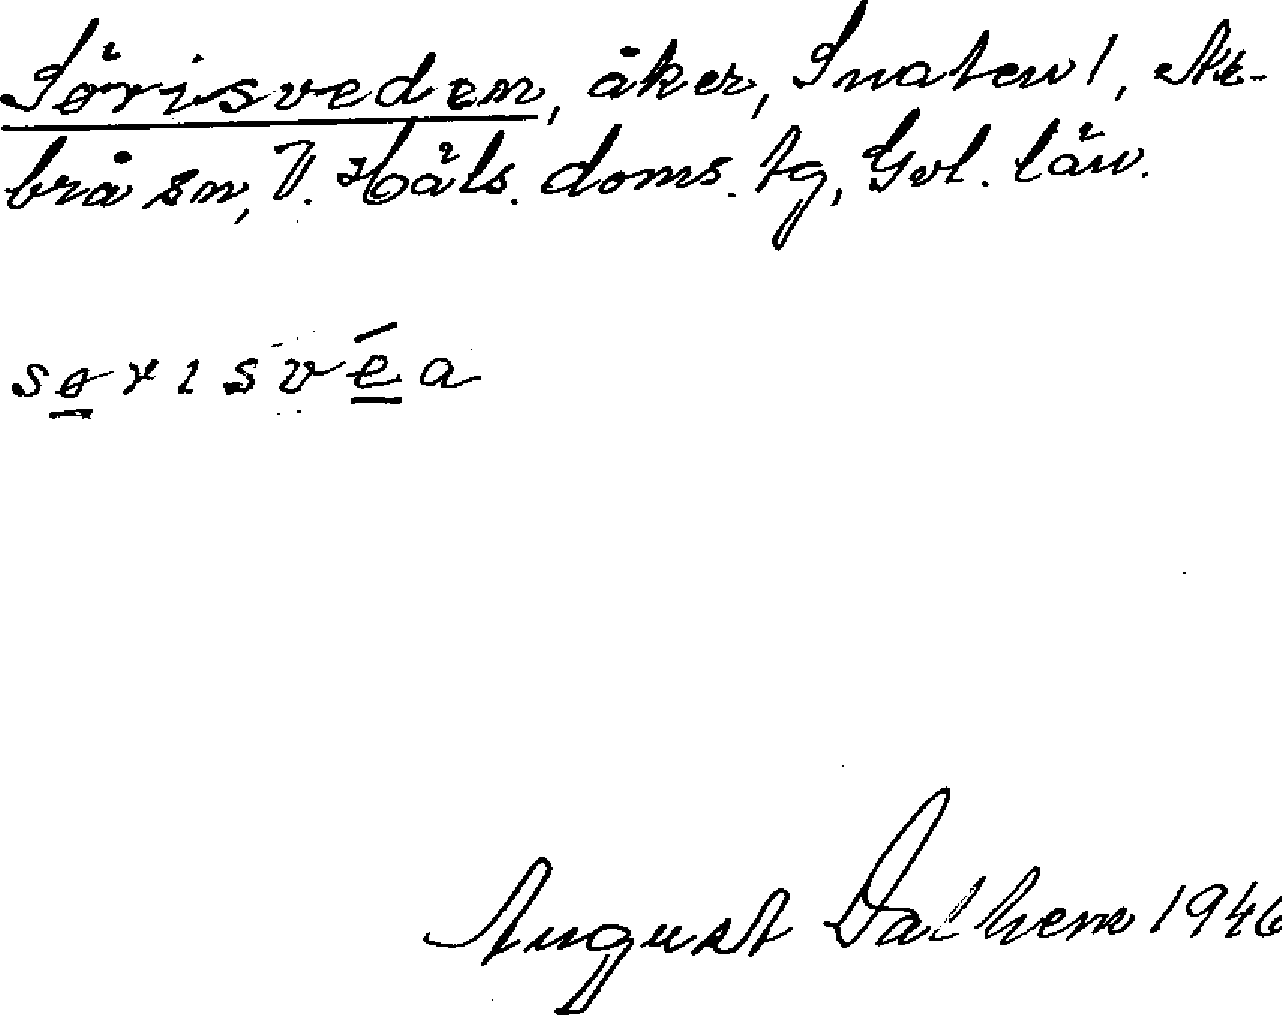 Sörisveden, åker, Snaten 1, Al-
brå sn, V. Häls. doms. tg, Gvl. län.
sørɪsvéa
August Dalhem 1946